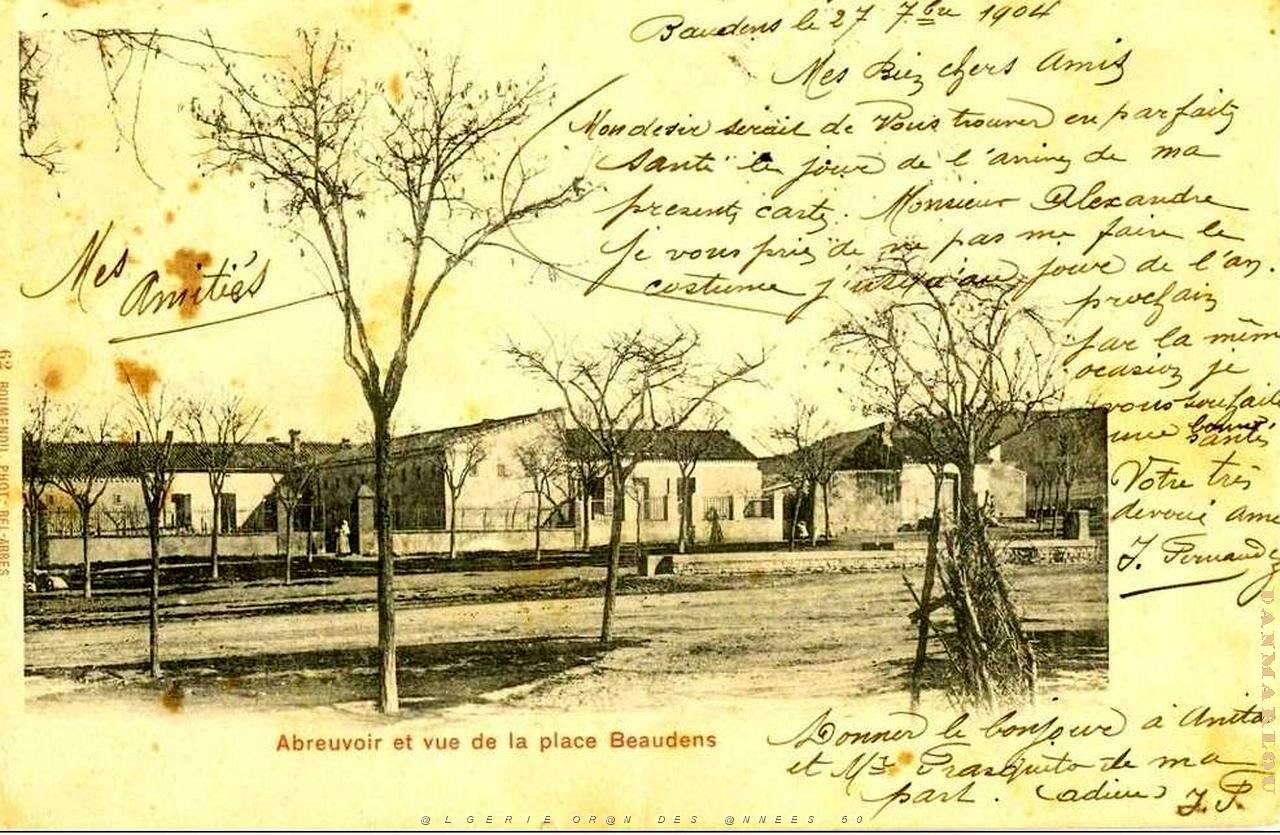 Baudens le 27 7bre 1904
Mes Biez chers Amis
Mon desir serait de Vous trouver en parfaite
Santé le jour de l'arivez de ma
presente carte. Monsieur Alexandre
Je vous prie de ne pas me faire le
costume j'usqu'au jour de l'an.
prochain
par la mêm
ocasion je
vous souhait
une bonne
santés
Votre très
devoué ame
J. Fernandez
Mes
Amitiés
62 BOUMENDIL PHOT. BEL-ABBÈS
Abreuvoir et vue de la place Beaudens
Donner le bonjour à Anita
et Mr Frasquito de ma
part. (adieu) J. F.
DANMARLOU
@LGERIE OR@N DES @NNEES 50